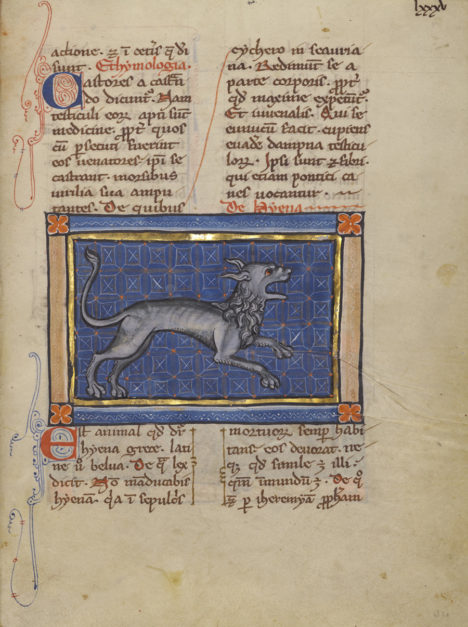 lxxxv
actione. et in ceteris que di
sunt. Ethymologia.
Castores a castran
do dicuntur. Nam
testiculi eorum apti sunt
medicine. propter quos
cum persecuti fuerint
eos uenatores ipsi se
castrant. morsibus
uirilia sua ampu
tantes. De quibus
cychero in scauria
na. Redimunt se a
parte corporis. propter
quod maxime expetuntur.
Et iuuenalis. Qui se
eunucum facit. cupiens
euade dampna testicu
lorum. Ipsi sunt et fibri.
qui etiam pontici ca
nes uocantur.
De Hyena
Est animal quod dicitur
hyena grece. lati
ne uero belua. De qua lex
dicit. Non manducabis
hyenam. quia in sepulcris
mortuorum semper habi
tans eos deuorat. ne
que quod simile est illi.
quoniam inmundum est. De quo
et per iheremyam propheetam